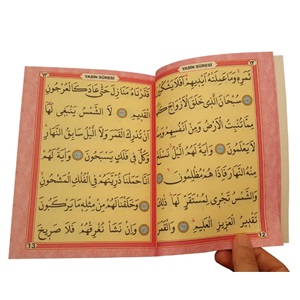 YASİN SÛRESİ
ثَمَرِهِ وَمَا عَمِلَتْهُ اَيْدِيهِمْ اَفَلَا يَشْكُرُونَ
سُبْحَانَ الَّذِى خَلَقَ الْاَزْوَاجَ كُلَّهَا
مِمَّا تُنْبِتُ الْاَرْضُ وَمِنْ اَنْفُسِهِمْ وَمِمَّا
لَا يَعْلَمُونَ وَاٰيَةٌ لَهُمُ الَّيْلُ نَسْلَخُ
مِنْهُ النَّهَارَ فَاِذَا هُمْ مُظْلِمُونَ
وَالشَّمْسُ تَجْرِى لِمُسْتَقَرٍّ لَهَا ذٰلِكَ
تَقْدِيرُ الْعَزِيزِ الْعَلِيمِ وَالْقَمَرَ
12
YASİN SÛRESİ
قَدَّرْنَاهُ مَنَازِلَ حَتّٰى عَادَ كَالْعُرْجُونِ
الْقَدِيمِ لَا الشَّمْسُ يَنْبَغِى لَهَا
اَنْ تُدْرِكَ الْقَمَرَ وَلَا الَّيْلُ سَابِقُ النَّهَارِ
وَكُلٌّ فِى فَلَكٍ يَسْبَحُونَ وَاٰيَةٌ لَهُمْ
اَنَّا حَمَلْنَا ذُرِّيَّتَهُمْ فِى الْفُلْكِ الْمَشْحُونِ
وَخَلَقْنَا لَهُمْ مِنْ مِثْلِهِ مَا يَرْكَبُونَ
وَاِنْ نَشَأْ نُغْرِقْهُمْ فَلَا صَرِيخَ
13